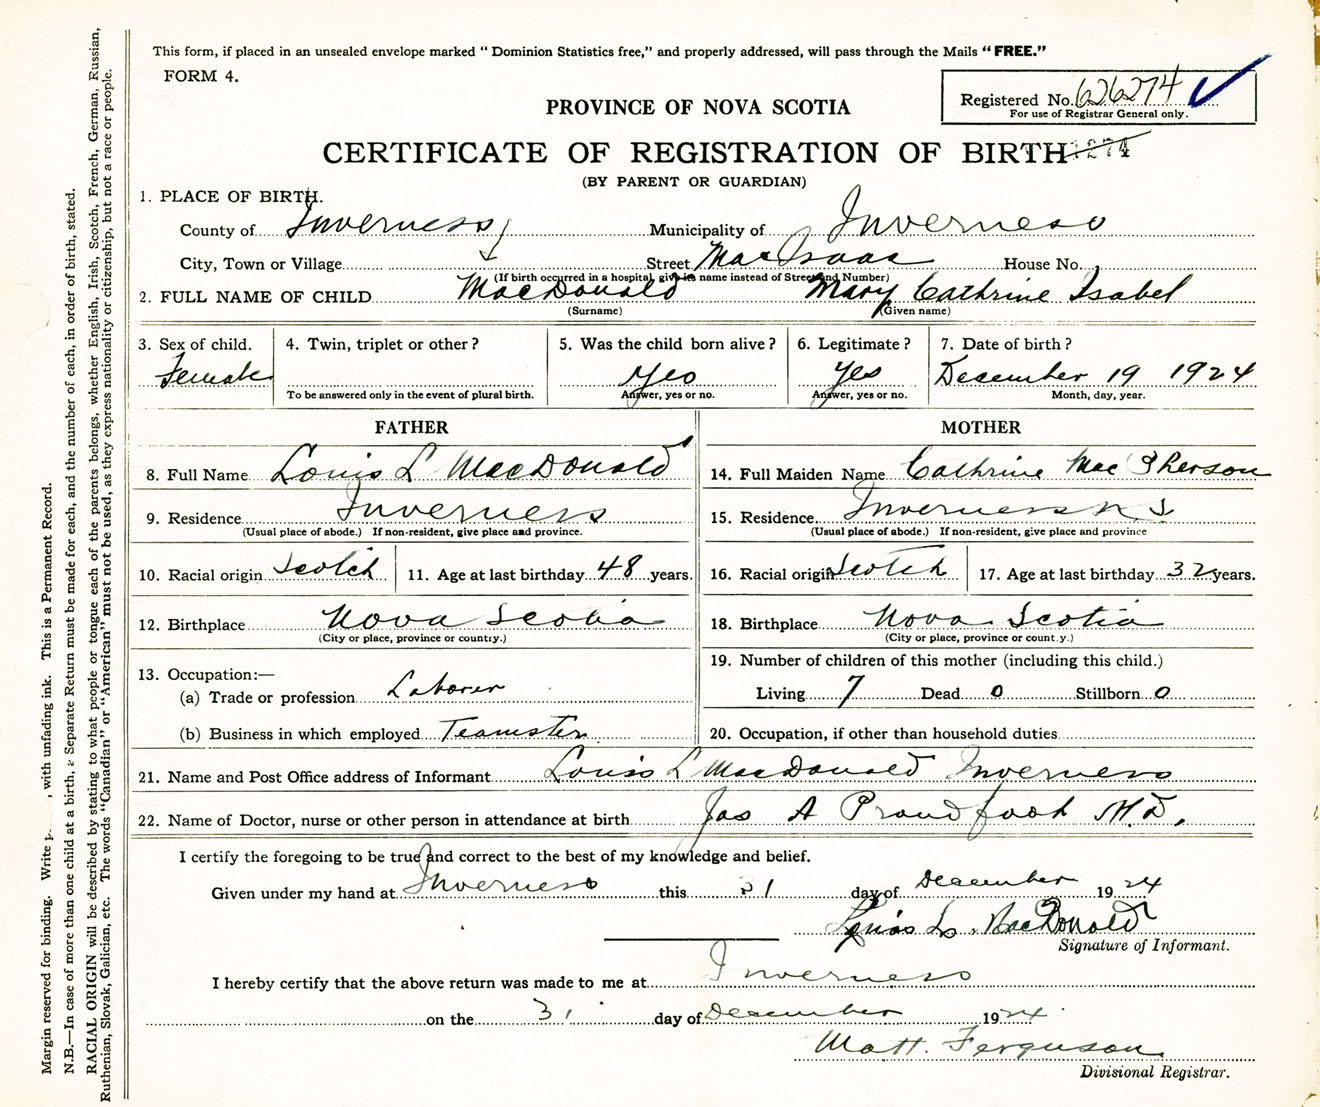 This form, if placed in an unsealed envelope marked " Dominion Statistics free," and properly addressed, will pass through the Mails " FREE."
FORM 4.
Registered No. 626274
For use of Registrar General only.
PROVINCE OF NOVA SCOTIA
CERTIFICATE OF REGISTRATION OF BIRTH 1274
(BY PARENT OR GUARDIAN)
1. PLACE OF BIRTH.
County of Inverness Municipality of Inverness
City, Town or Village Street MacIsaac House No.
(If birth occurred in a hospital, give its name instead of Street and Number)
2. FULL NAME OF CHILD MacDonald Mary Cathrine Isabel
(Surname) (Given name)
3. Sex of child. 4. Twin, triplet or other ? 5. Was the child born alive ? 6. Legitimate ? 7. Date of birth ?
Female Yes Yes December 19 1924
To be answered only in the event of plural birth. Answer, yes or no. Answer, yes or no. Month, day, year.
FATHER MOTHER
8. Full Name Louis L MacDonald 14. Full Maiden Name Cathrine MacPherson
9. Residence Inverness 15. Residence Inverness N S
(Usual place of abode.) If non-resident, give place and province. (Usual place of abode.) If non-resident, give place and province
10. Racial origin Scotch 11. Age at last birthday 48 years. 16. Racial origin Scotch 17. Age at last birthday 32 years.
12. Birthplace Nova Scotia 18. Birthplace Nova Scotia
(City or place, province or country.) (City or place, province or count.y.)
13. Occupation:— 19. Number of children of this mother (including this child.)
(a) Trade or profession Laborer Living 7 Dead 0 Stillborn 0
(b) Business in which employed Teamster 20. Occupation, if other than household duties
21. Name and Post Office address of Informant Louis L MacDonald Inverness
22. Name of Doctor, nurse or other person in attendance at birth Jas A Proudfoot M.D.
I certify the foregoing to be true and correct to the best of my knowledge and belief.
Given under my hand at Inverness this 31 day of December 19 24
Louis L. MacDonald
Signature of Informant.
I hereby certify that the above return was made to me at Inverness
on the 31 day of December 19 24
Matt. Ferguson
Divisional Registrar.
Margin reserved for binding. Write , with unfading ink. This is a Permanent Record.
N.B.—In case of more than one child at a birth, a Separate Return must be made for each, and the number of each, in order of birth, stated.
RACIAL ORIGIN will be described by stating to what people or tongue each of the parents belongs, whether English, Irish, Scotch, French, German, Russian,
Ruthenian, Slovak, Galician, etc. The words "Canadian" or "American" must not be used, as they express nationality or citizenship, but not a race or people.